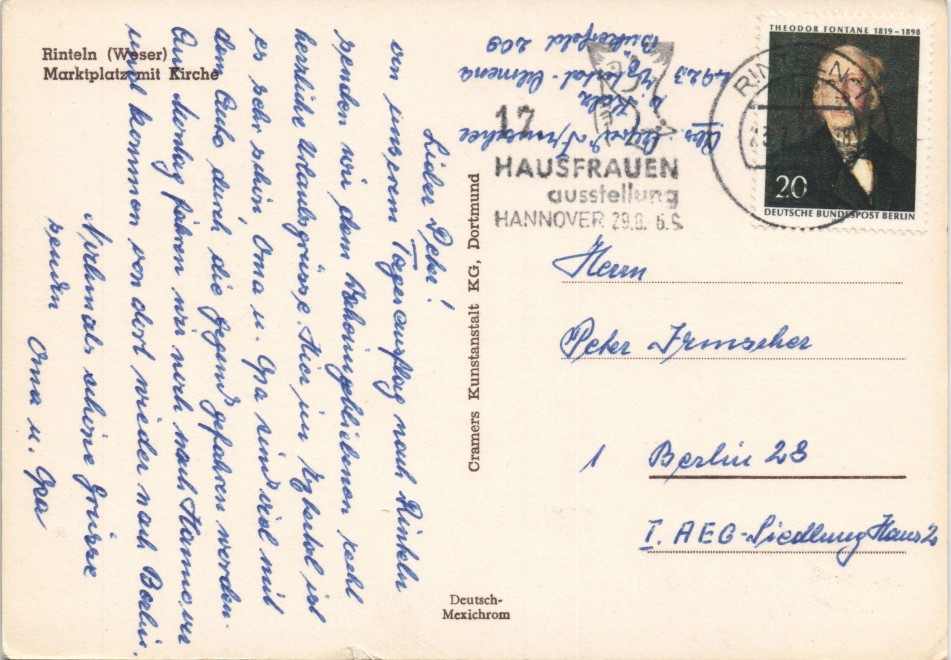 Rinteln (Weser)
Marktplatz mit Kirche
Lieber Peter!
von unserem Tagesausflug nach Rinteln
senden wir dem Daheimgebliebenen recht
herzliche Urlaubsgrüsse. Hier in Extertal ist
es sehr schön. Oma u. Opa sind viel mit
dem Auto durch die Gegend gefahren worden.
Am Montag fahren wir noch nach Hannover
und kommen von dort wieder nach Berlin.
Nochmals schöne Grüsse
senden
Oma u. Opa
Cramers Kunstanstalt KG, Dortmund
Deutsch-
Mexichrom
Abs. Irmscher
4923 Extertal-
209
17.
HAUSFRAUEN
ausstellung
HANNOVER 29.8.-6.9.
RINTELN 1
THEODOR FONTANE 1819-1898
20
DEUTSCHE BUNDESPOST BERLIN
Herrn
Peter Irmscher
1 Berlin 28
I. AEG-Siedlung Haus 2